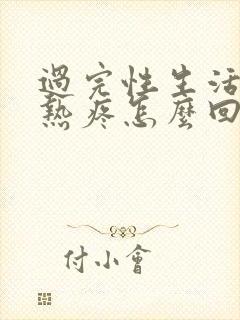 過完性生活
熱疼怎麼回
付小會